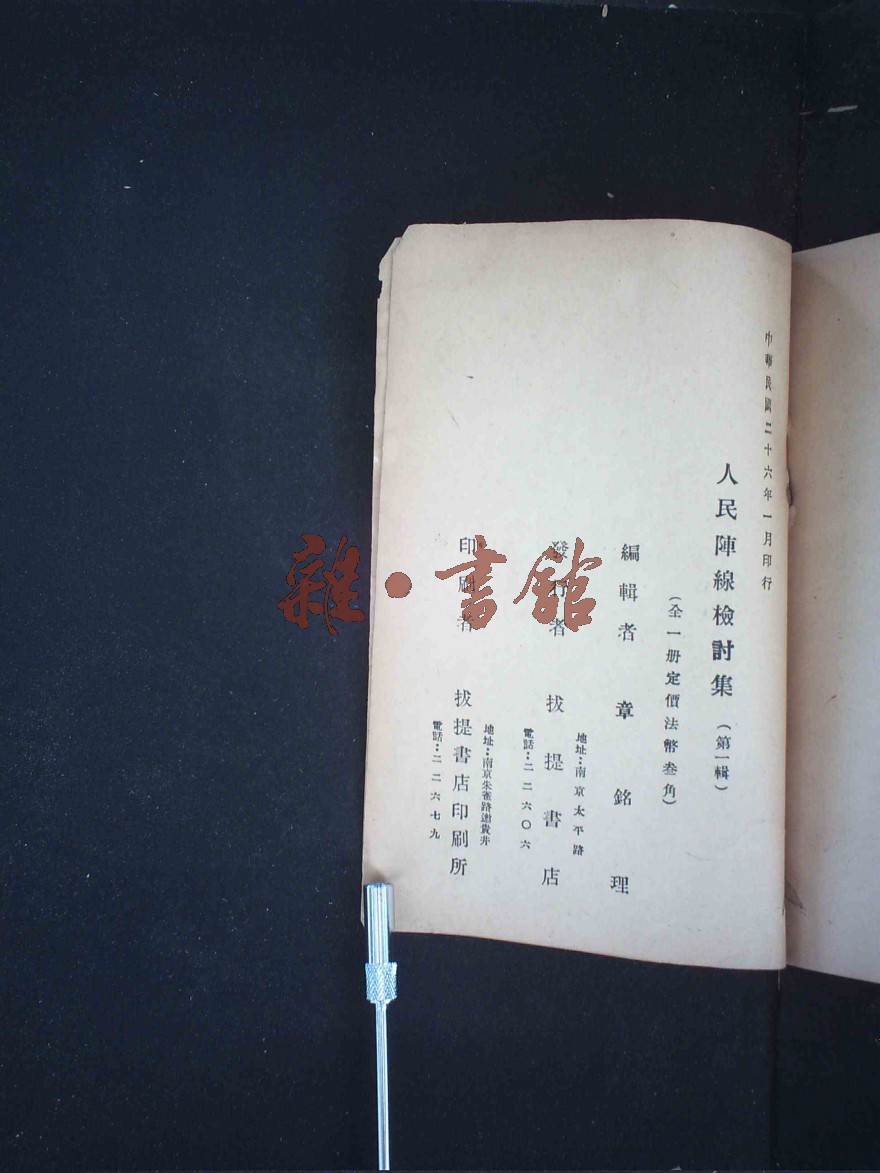 中華民國二十六年一月印行
人民陣線檢討集（第一輯）
（全一册定價法幣叁角）
編輯者 章銘理
發行者 拔提書店
地址：南京太平路
電話：二二六〇六
印刷者 拔提書店印刷所
地址：南京朱雀路邀貴井
電話：二二六七九
雜·書館